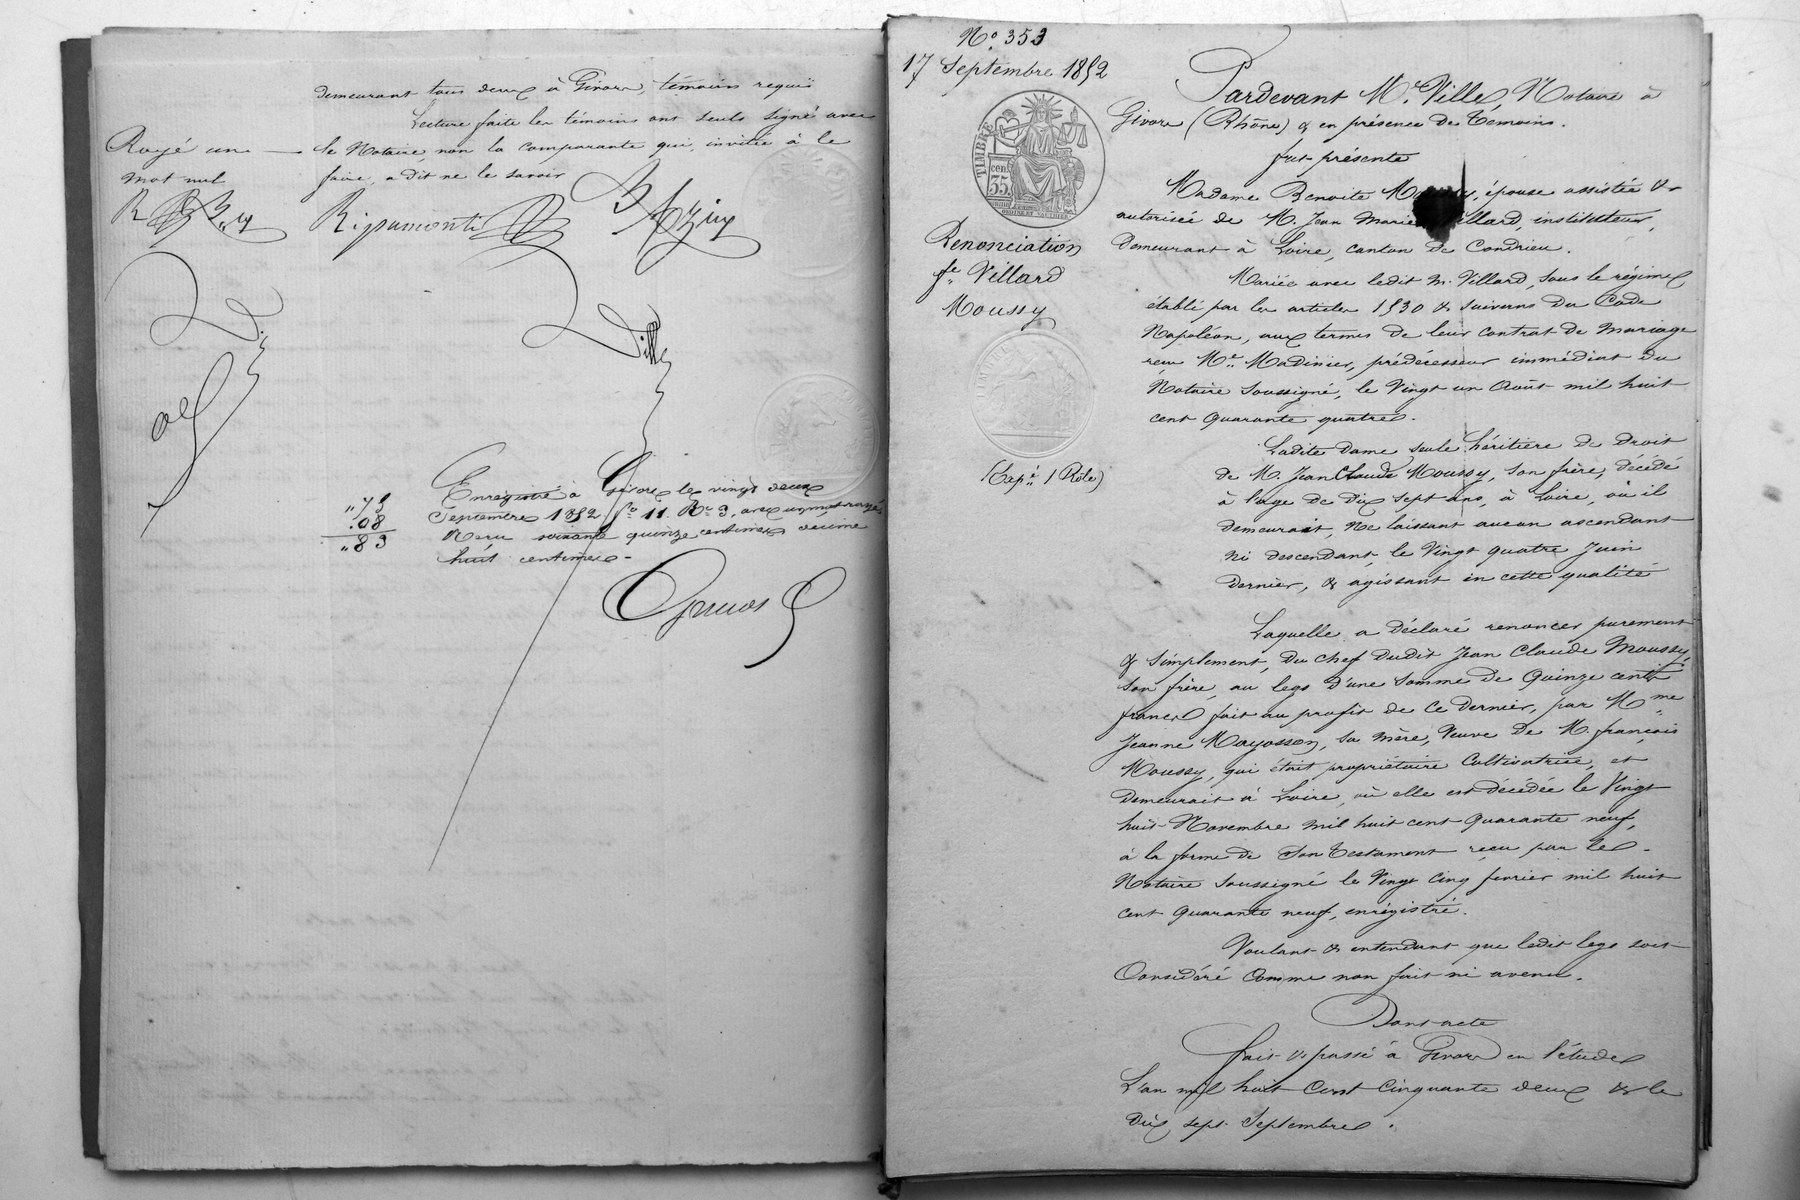 demeurant tous deux à Givors, témoins requis
Lecture faite les témoins ont seuls signé avec
le Notaire, non la comparante qui, invitée à le
faire, a dit ne le savoir
Rayé un
mot nul
Ripamonti
Ville
"75
.08
"83
Enregistré à Givors le vingt deux
Septembre 1852 f° 11. R° 3, avec un mot rayé
Reçu soixante quinze centimes décime
huit centimes
N° 353
17 Septembre 1852
TIMBRE
35
Renonciation
fe Villard
Moussy
(Exp é 1 Rôle)
Pardevant Me Ville, Notaire à
Givors (Rhône) & en présence de Témoins.
fut présente
Madame Benoite épouse assistée &
autorisée de M. Jean Marie instituteur,
demeurant à Loire, canton de Condrieu.
Mariée avec ledit m. Villard, sous le régime
établi par les articles 1530 & suivans du Code
Napoléon, aux termes de leur contrat de mariage
reçu Me Madinier, prédécesseur immédiat du
Notaire soussigné, le Vingt un Août mil huit
cent quarante quatre.
Ladite dame seule héritière de droit
de M. Jean Claude Moussy, son frère, décédé
à l'age de dix sept ans, à Loire, où il
demeurait, Ne laissant aucun ascendant
ni descendant, le Vingt quatre Juin
dernier, & agissant en cette qualité
Laquelle a déclaré renoncer purement
& simplement, du chef dudit Jean Claude Moussy,
son frère, au legs d'une somme de Quinze cents
francs fait au profit de ce dernier, par Mme
Jeanne sa mère, Veuve de M. françois
Moussy, qui était propriétaire Cultivatrice, et
demeurait à Loire, où elle est décédée le Vingt
huit Novembre mil huit cent quarante neuf,
à la forme de son testament reçu par le
Notaire soussigné le Vingt cinq fevrier mil huit
cent quarante neuf, enrégistré.
Voulant & entendant que ledit legs soit
Considéré comme non fait ni avenu.
Dont acte
fait & passé à Givors en l'étude
L'an mil huit cent cinquante deux & le
dix sept Septembre.